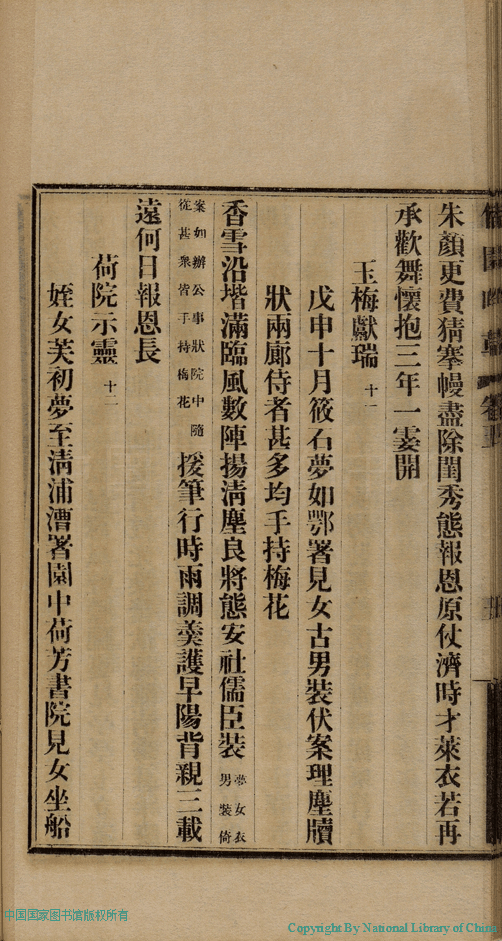 朱顏更費猜搴幔盡除閨秀態報恩原仗濟時才萊衣若再
承歡舞懷抱三年一霎開
玉梅獻瑞 十一
戊申十月筱石夢如鄂署見女古男裝伏案理塵牘
狀兩廊侍者甚多均手持梅花
香雪沿堦滿臨風數陣揚清塵良將態安社儒臣裝 夢女衣男裝倚
案如辦公事狀院中隨從甚衆皆手持梅花 援筆行時雨調羹護早陽背親三載
遠何日報恩長
荷院示靈 十二
姪女芙初夢至清浦漕署園中荷芳書院見女坐船
中国国家图书馆版权所有
Copyright By National Library of China